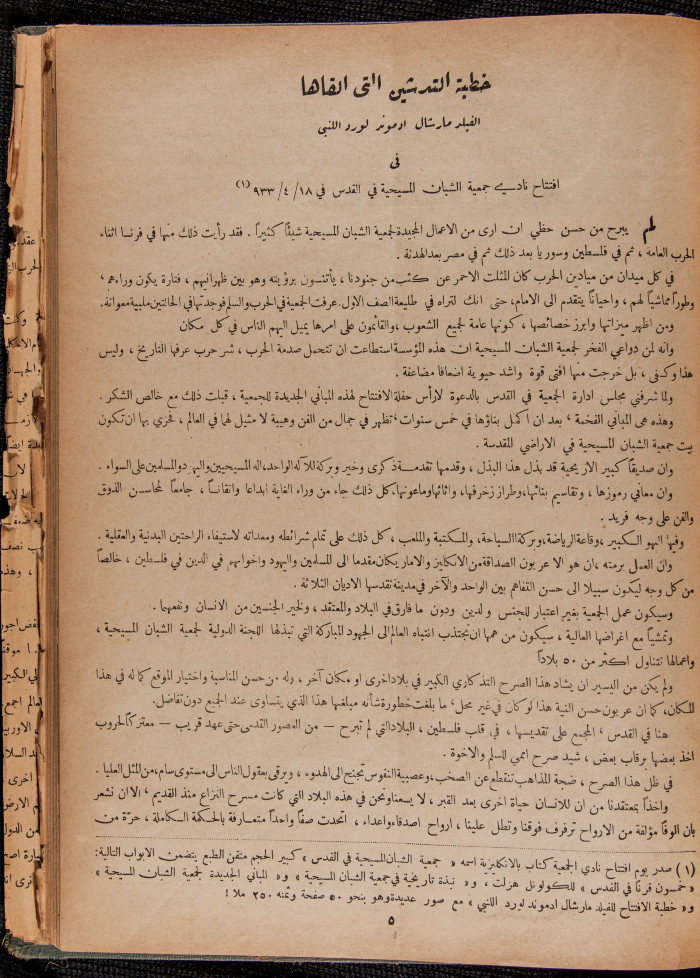 خطبة التدشين التى القاها
الفيلد مارشال ادموند لورد اللنبي
فى
افتتاح نادي جمعية الشبان المسيحية في القدس في ١٨/ ٤/ ٩٣٣ (١)
لم يبرح من حسن حظي ان ارى من الاعمال المجيدة لجمعية الشبان المسيحية شيئًا كثيراً . فقد رأيت ذلك منها في فرنسا اثناء
الحرب العامة ، ثم في فلسطين وسوريا بعد ذلك ثم في مصر بعد الهدنة .
في كل ميدان من ميادين الحرب كان المثلث الاحمر عن كثب من جنودنا ، يأتنسون برؤيته وهو بين ظهرانيهم ، فتارة يكون وراءهم ،
وطوراً مماشياً لهم ، واحياناً يتقدم الى الامام، حتى انك لتراه في طليعة الصف الاول. عرفت الجمعية في الحرب والسلم فوجدتها في الحالتين ملبية معوانة.
ومن اظهر ميزاتها وابرز خصائصها ، كونها عامة لجميع الشعوب، والقائمون على امرها يميل اليهم الناس في كل مكان
وانه لمن دواعي الفخر لجمعية الشبان المسيحية ان هذه المؤسسة استطاعت ان تتحمل صدمة الحرب ، شر حرب عرفها التاريخ ، وليس
هذا وكفى ، بل خرجت منها اقتى قوة واشد حيوية اضعافا مضاعفة .
ولما شرفني مجلس ادارة الجمعية في القدس بالدعوة لارأس حفلة الافتتاح لهذه المباني الجديدة للجمعية ، قبلت ذلك مع خالص الشكر .
وهذه هى المباني الفخمة ، بعد ان اكمل بناؤها في خمس سنوات، تظهر في جمال من الفن وهيبة لا مثيل لهما في العالم ، فحري بها ان تكون
بيت جمعية الشبان المسيحية في الاراضي المقدسة .
وان صديقاً كبير الاريحية قد بذل هذا البذل ، وقدمها تقدمة ذكرى وخير وبركة للآله الواحد، اله المسيحيين واليهود والمسلمين على السواء .
وان معاني رموزها ، وتقاسيم بنائها، وطراز زخرفها، واثاثها وماعونها، كل ذلك جاء من وراء الغاية ابداعا واتقاناً ، جامعاً لمحاسن الذوق
والفن على وجه فريد .
وفيها البهو الكبير ، وقاعة الرياضة، وبركة السباحة، والمكتبة والملعب ، كل ذلك على تمام شرائطه ومعداته لاستيفاء الراحتين البدنية والعقلية .
وان العمل برمته ، ان هو الا عربون الصداقة من الانكليز والاماريكان مقدما الى المسلمين واليهود واخوانهم في الدين في فلسطين ، خالصاً
من كل وجه ليكون سبيلا الى حسن التفاهم بين الواحد والآخر في مدينة تقدسها الاديان الثلاثة .
وسيكون عمل الجمعية بغير اعتبار للجنس والدين ودون ما فارق في البلاد والمعتقد ، ولخير الجنسين من الانسان ونفعهما .
وتمشياً مع اغراضها العالية ، سيكون من همها ان تجتذب انتباه العالم الى الجهود المباركة التي تبذلها اللجنة الدولية لجمعية الشبان المسيحية ،
واعمالها تتناول اكثر من ٥٠ بلاداً
ولم يكن من اليسير ان يشاد هذا الصرح التذكاري الكبير في بلاد اخرى او مكان آخر ، وله من حسن المناسبة واختيار الموقع كما له في هذا
المكان، كما ان عربون حسن النية هذا لو كان في غير محل ، ما بلغت خطورة شأنه مبلغها هذا الذي يتساوى عند الجميع دون تفاضل.
هنا في القدس ، المجمع على تقديسها ، في قلب فلسطين ، البلاد التي لم تبرح — من العصور القدمى حتى عهد قريب — معتركاً لحروب
اخذ بعضها برقاب بعض ، شيد صرح اممي للسلم والاخوة .
في ظل هذا الصرح ، ضجة المذاهب تنقطع عن الصخب، وعصبية النفوس تجنح الى الهدوء ، ويرقى بعقول الناس الى مستوى سام، من المثل العليا .
واخذاً بمعتقدنا من ان للانسان حياة اخرى بعد القبر ، لا يسعنا ونحن في هذه البلاد التي كانت مسرح النزاع منذ القديم ، الا ان نشعر
بان الوفاً مؤلفة من الارواح ترفرف فوقنا وتطل علينا ، ارواح اصدقاء واعداء ، اتحدت صفاً واحداً متعارفة بالحكمة الكاملة ، حرّة من
(١) صدر يوم افتتاح نادي الجمعية كتاب بالانكليزية اسمه « جمعية الشبان المسيحية في القدس » كبير الحجم متقن الطبع يتضمن الابواب التالية:
« خمسون قرناً في القدس » للكولونل هزلت ، و« نبذة تاريخية في جمعية الشبان المسيحية » و« المباني الجديدة لجمعية الشبان المسيحية »
و« خطبة الافتتاح للفيلد مارشال ادموند لورد اللنبي » مع صور عديدة وهو بنحو ٥٠ صفحة وثمنه ٢٥٠ ملا !
٥